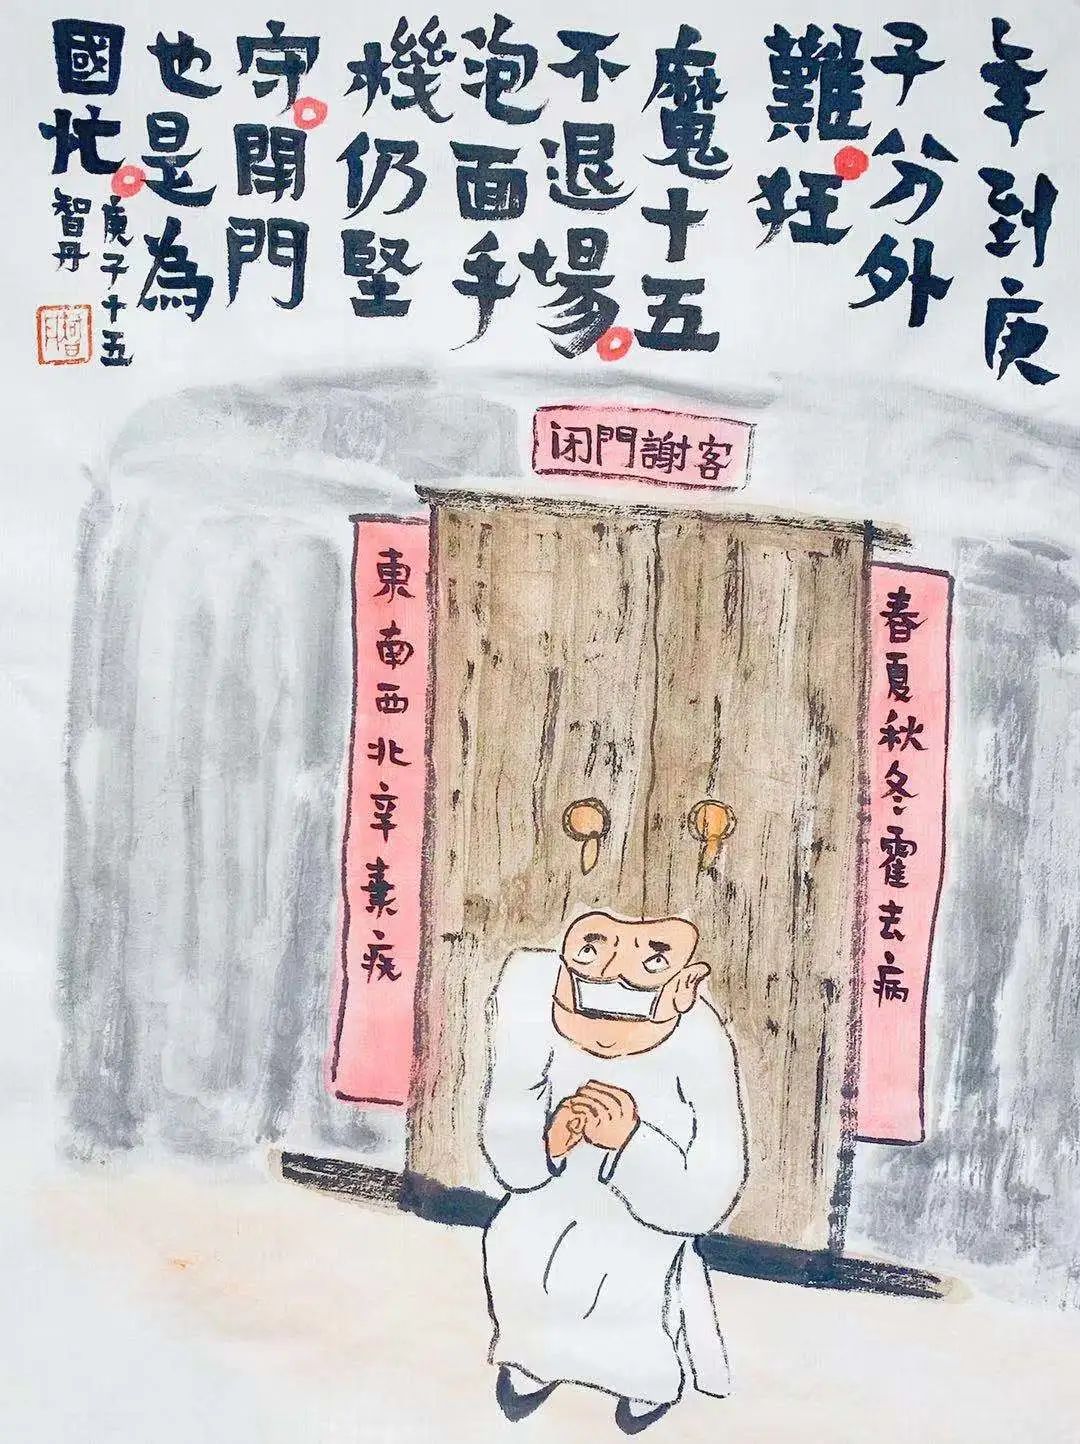 年到庚
子分外
難。狂
魔十五
不退場。
泡面手
機仍堅
守。閉門
也是為
國忙。
庚子十五
智丹
闭門謝客
春夏秋冬霍去病
東南西北辛棄疾